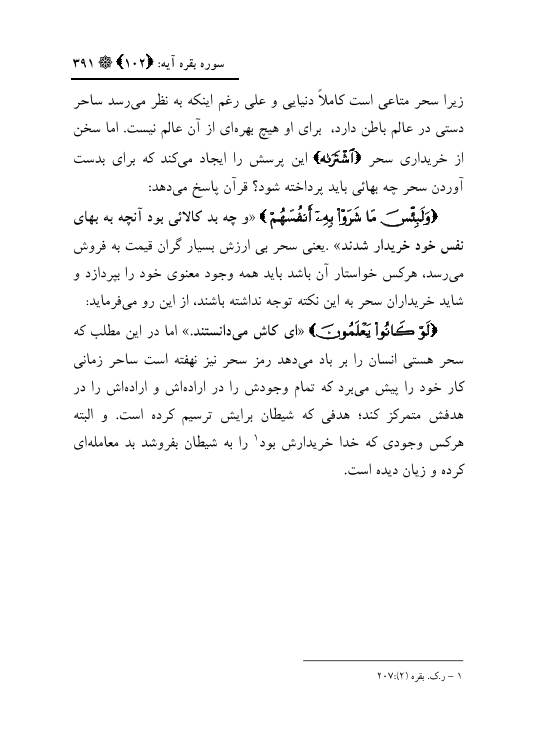 سوره بقره آیه: ﴿۱۰۲﴾ ۳۹۱
زیرا سحر متاعی است کاملاً دنیایی و علی رغم اینکه به نظر می‌رسد ساحر
دستی در عالم باطن دارد، برای او هیچ بهره‌ای از آن عالم نیست. اما سخن
از خریداری سحر ﴿ٱشۡتَرَىٰهُ﴾ این پرسش را ایجاد می‌کند که برای بدست
آوردن سحر چه بهائی باید پرداخته شود؟ قرآن پاسخ می‌دهد:
﴿وَلَبِئۡسَ مَا شَرَوۡاْ بِهِۦٓ أَنفُسَهُمۡ﴾ «و چه بد کالائی بود آنچه به بهای
نفس خود خریدار شدند» .یعنی سحر بی ارزش بسیار گران قیمت به فروش
می‌رسد، هرکس خواستار آن باشد باید همه وجود معنوی خود را بپردازد و
شاید خریداران سحر به این نکته توجه نداشته باشند، از این رو می‌فرماید:
﴿لَوۡ كَانُواْ يَعۡلَمُونَ﴾ «ای کاش می‌دانستند.» اما در این مطلب که
سحر هستی انسان را بر باد می‌دهد رمز سحر نیز نهفته است ساحر زمانی
کار خود را پیش می‌برد که تمام وجودش را در اراده‌اش و اراده‌اش را در
هدفش متمرکز کند؛ هدفی که شیطان برایش ترسیم کرده است. و البته
هرکس وجودی که خدا خریدارش بود۱ را به شیطان بفروشد بد معامله‌ای
کرده و زیان دیده است.
۱ – ر.ک. بقره (۲):۲۰۷